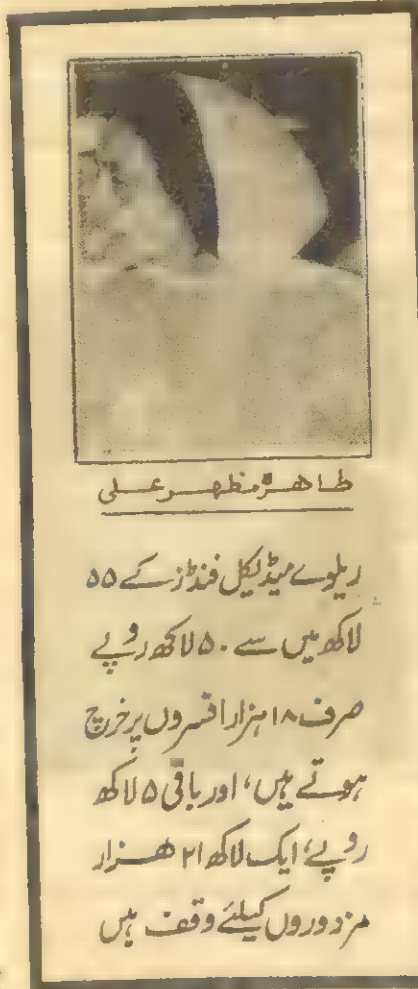 طاہرہ مظہر علی
ریلوے میڈیکل فنڈز کے ۵۵
لاکھ میں سے ۵۰ لاکھ روپے
صرف ۱۸ ہزار افسروں پر خرچ
ہوتے ہیں، اور باقی ۵ لاکھ
روپے، ایک لاکھ ۲۱ ہزار
مزدوروں کیلئے وقف ہیں